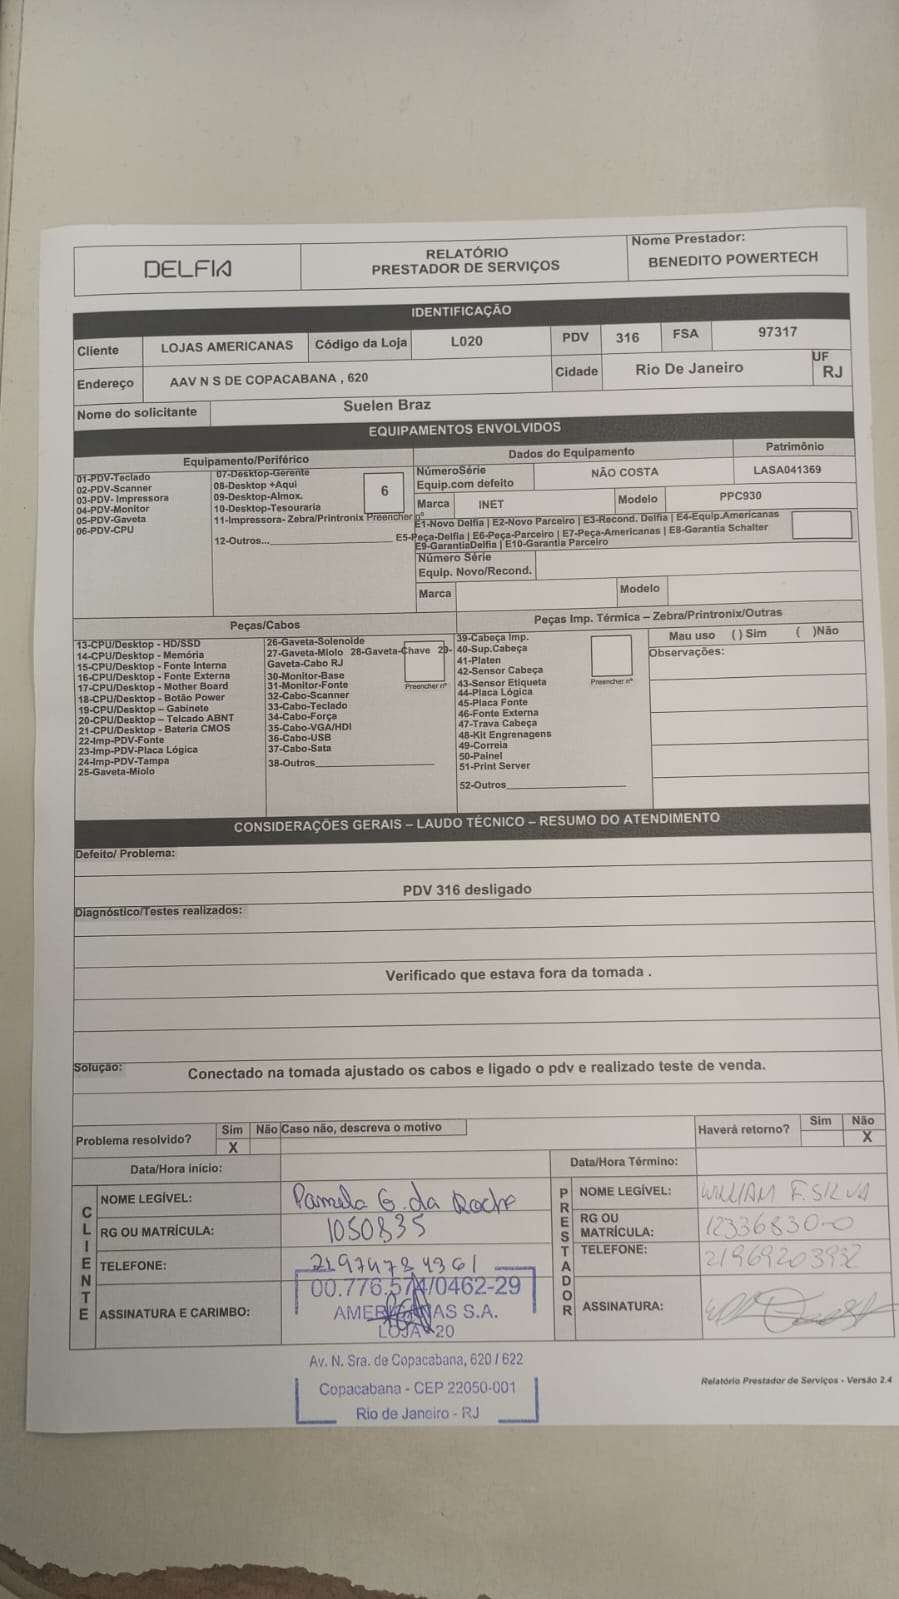 DELFIA
RELATÓRIO
PRESTADOR DE SERVIÇOS
Nome Prestador:
BENEDITO POWERTECH
IDENTIFICAÇÃO
Cliente LOJAS AMERICANAS Código da Loja L020 PDV 316 FSA 97317
Endereço AAV N S DE COPACABANA , 620 Cidade Rio De Janeiro UF RJ
Nome do solicitante Suelen Braz
EQUIPAMENTOS ENVOLVIDOS
Equipamento/Periférico
01-PDV-Teclado
02-PDV-Scanner
03-PDV- Impressora
04-PDV-Monitor
05-PDV-Gaveta
06-PDV-CPU
07-Desktop-Gerente
08-Desktop +Aqui
09-Desktop-Almox.
10-Desktop-Tesouraria
11-Impressora- Zebra/Printronix Preencher nº
12-Outros...
6
Dados do Equipamento
Patrimônio
NúmeroSérie
Equip.com defeito
NÃO COSTA
LASA041369
Marca INET Modelo PPC930
E1-Novo Delfia | E2-Novo Parceiro | E3-Recond. Delfia | E4-Equip.Americanas
E5-Peça-Delfia | E6-Peça-Parceiro | E7-Peça-Americanas | E8-Garantia Schalter
E9-GarantiaDelfia | E10-Garantia Parceiro
Número Série
Equip. Novo/Recond.
Marca Modelo
Peças/Cabos
13-CPU/Desktop - HD/SSD
14-CPU/Desktop - Memória
15-CPU/Desktop - Fonte Interna
16-CPU/Desktop - Fonte Externa
17-CPU/Desktop - Mother Board
18-CPU/Desktop - Botão Power
19-CPU/Desktop – Gabinete
20-CPU/Desktop – Telcado ABNT
21-CPU/Desktop - Bateria CMOS
22-Imp-PDV-Fonte
23-Imp-PDV-Placa Lógica
24-Imp-PDV-Tampa
25-Gaveta-Miolo
26-Gaveta-Solenoide
27-Gaveta-Miolo 28-Gaveta-Chave 29-
Gaveta-Cabo RJ
30-Monitor-Base
31-Monitor-Fonte
32-Cabo-Scanner
33-Cabo-Teclado
34-Cabo-Força
35-Cabo-VGA/HDI
36-Cabo-USB
37-Cabo-Sata
38-Outros
Preencher nº
Peças Imp. Térmica – Zebra/Printronix/Outras
39-Cabeça Imp.
40-Sup.Cabeça
41-Platen
42-Sensor Cabeça
43-Sensor Etiqueta
44-Placa Lógica
45-Placa Fonte
46-Fonte Externa
47-Trava Cabeça
48-Kit Engrenagens
49-Correia
50-Painel
51-Print Server
52-Outros
Preencher nº
Mau uso ( ) Sim ( )Não
Observações:
CONSIDERAÇÕES GERAIS – LAUDO TÉCNICO – RESUMO DO ATENDIMENTO
Defeito/ Problema:
PDV 316 desligado
Diagnóstico/Testes realizados:
Verificado que estava fora da tomada .
Solução:
Conectado na tomada ajustado os cabos e ligado o pdv e realizado teste de venda.
Problema resolvido? Sim X Não Caso não, descreva o motivo
Haverá retorno? Sim Não X
Data/Hora início: Data/Hora Término:
CLIENTE
NOME LEGÍVEL: Pamela G. da Rocha
RG OU MATRÍCULA: 1050835
TELEFONE: 21974784361
ASSINATURA E CARIMBO:
00.776.574/0462-29
AMERICANAS S.A.
LOJA 20
Av. N. Sra. de Copacabana, 620 / 622
Copacabana - CEP 22050-001
Rio de Janeiro - RJ
PRESTADOR
NOME LEGÍVEL: WILLIAM F. SILVA
RG OU
MATRÍCULA: 12336830-0
TELEFONE: 21969203932
ASSINATURA:
Relatório Prestador de Serviços - Versão 2.4